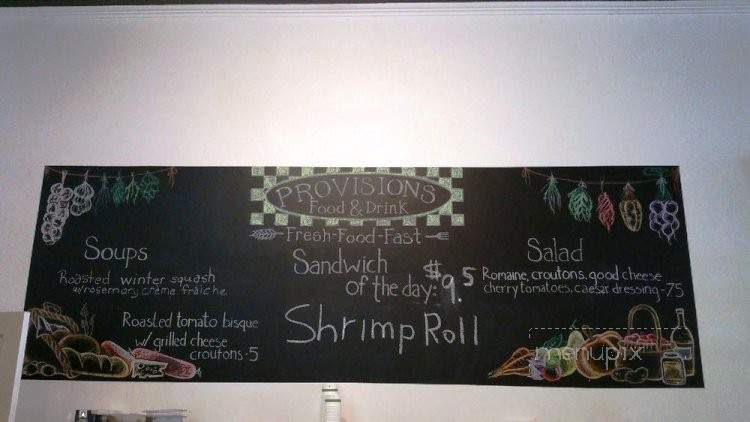 PROVISIONS
Food & Drink
Fresh-Food-Fast
Soups
Roasted winter squash
w/rosemary créme fraîche
Roasted tomato bisque
w/ grilled cheese
croutons·5
Sandwich
of the day: $9.5
Shrimp Roll
Salad
Romaine, croutons, good cheese
cherry tomatoes, caesar dressing-75
menupix